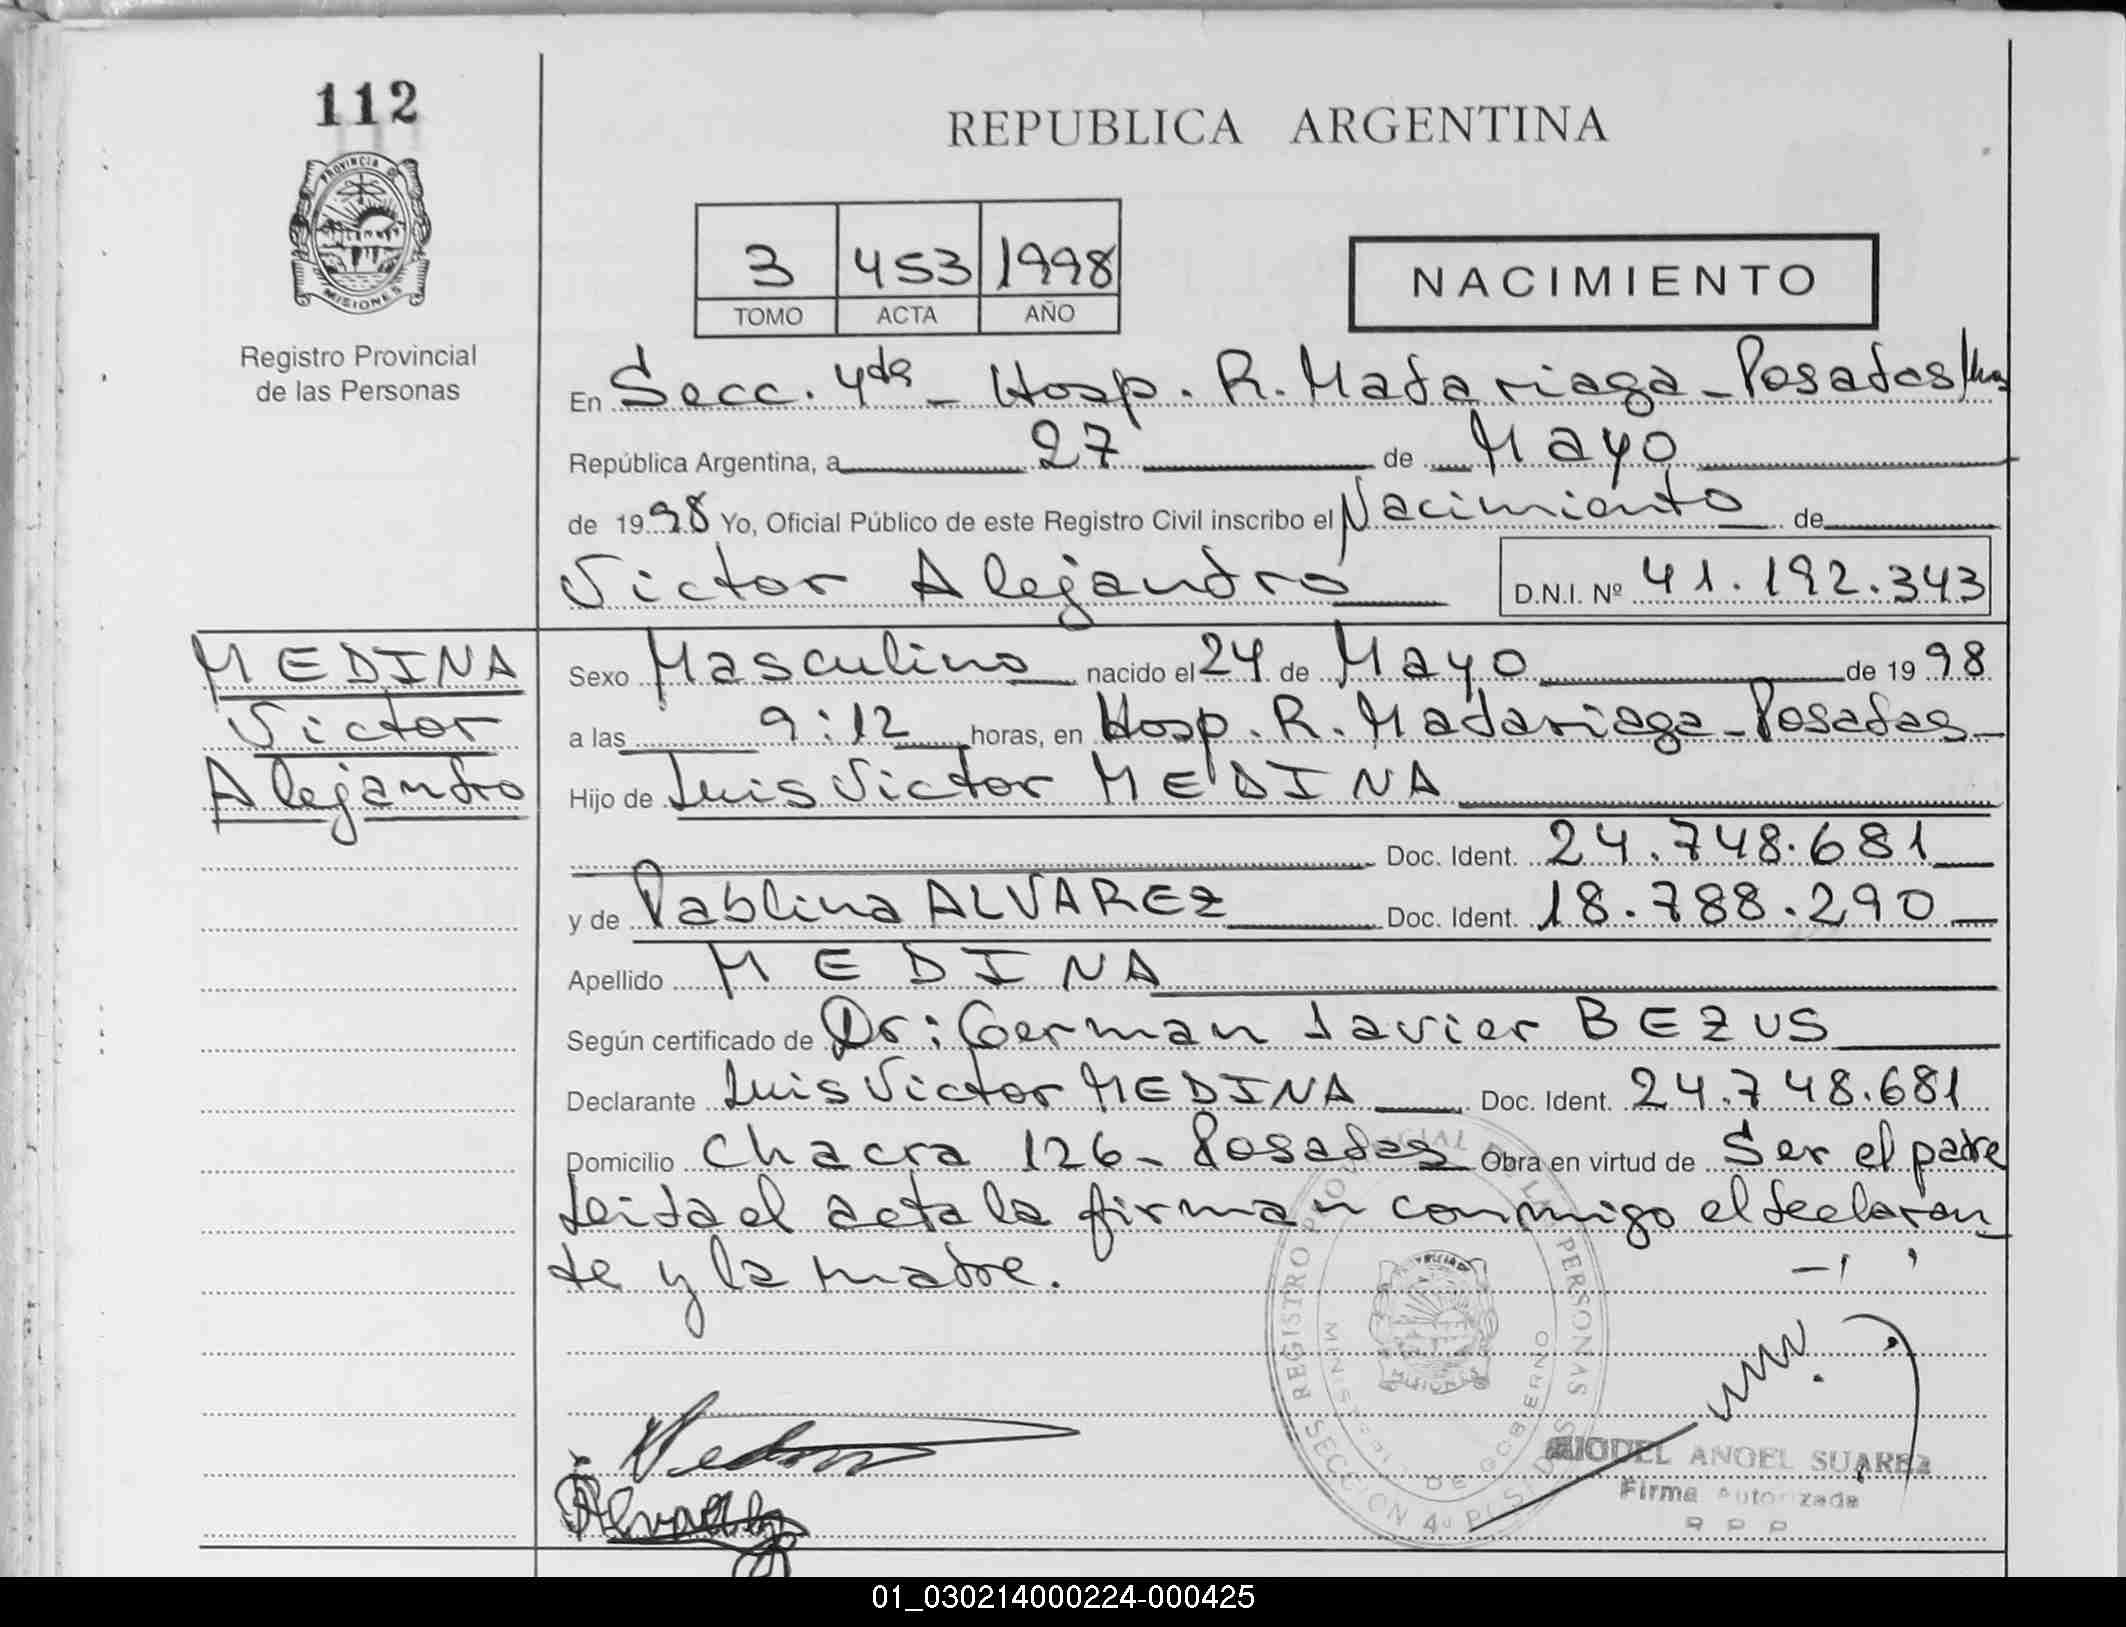 112
REPUBLICA ARGENTINA
PROVINCIA DE
MISIONES
Registro Provincial
de las Personas
3 453 1998
TOMO ACTA AÑO
NACIMIENTO
En Secc. 4da - Hosp. R. Madariaga - Posadas
República Argentina, a 27 de Mayo
de 1998 Yo, Oficial Público de este Registro Civil inscribo el Nacimiento de
Victor Alejandro D.N.I. Nº 41.192.343
MEDINA
Victor
Alejandro
Sexo Masculino nacido el 24 de Mayo de 1998
a las 9:12 horas, en Hosp. R. Madariaga - Posadas -
Hijo de Luis Victor MEDINA
Doc. Ident. 24.748.681
y de Pablina ALVAREZ Doc. Ident. 18.788.290
Apellido MEDINA
Según certificado de Dr: German Javier BEZUS
Declarante Luis Victor MEDINA Doc. Ident. 24.748.681
Domicilio Chacra 126 - Posadas Obra en virtud de Ser el padre
Leida el acta la firman conmigo el declaran
te y la madre.
REGISTRO PROVINCIAL DE LAS PERSONAS
MINISTERIO DE GOBIERNO
SECCION 4ª POSADAS
MISIONES
ANGEL SUAREZ
Firma Autorizada
R P P
01_030214000224-000425